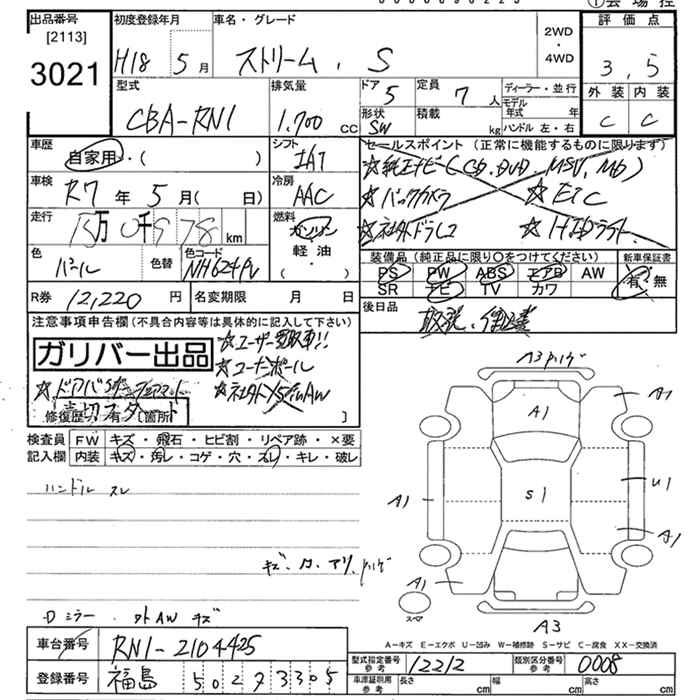 出品番号
[2113]
3021
初度登録年月
H18 5月
車名・グレード
ストリーム . S
2WD
・
4WD
①会場控
評価点
3,5
外装 内装
C C
型式
CBA-RN1
排気量
1,700 cc
ドア 5
定員 7 人
形状 SW
積載 kg
ディーラー・並行
モデル年式 年
ハンドル 左・右
車歴
自家用・( )
シフト
IAT
車検
R7 年 5 月( 日)
冷房
AAC
走行
km
燃料
ガソリン
軽油
・( )
色
パール
色替
色コード
NH624Pv
R券 12,220 円
名変期限 月 日
セールスポイント (正常に機能するものに限ります)
☆純正ナビ(CD、DVD、MSV、MD)
☆バックカメラ ☆ETC
☆社外ドラレコ ☆HIDライト
装備品 (純正品に限り○をつけてください)
新車保証書
PS PW ABS エアB AW
SR ナビ TV カワ
有・無
後日品
取説、
注意事項申告欄 (不具合内容等は具体的に記入して下さい)
ガリバー出品
☆ユーザー買取車!!
☆コーナーポール
修復歴・有 [箇所 ]
検査員
記入欄
FW キズ・飛石・ヒビ割・リペア跡・×要
内装 キズ・汚レ・コゲ・穴・スレ・キレ・破レ
ハンドル スレ
Dミラー . 外AW キズ
A1
A1
S1
A1
U1
A1
A1
A3
スペア
A-キズ E-エクボ U-凹み W-補修跡 S-サビ C-腐食 XX-交換済
車台番号 RN1-2104425
登録番号 福島 502 ア 3305
型式指定番号 参考 12212
類別区分番号 参考 0008
車庫証明用 参考
長さ cm
幅 cm
高さ cm